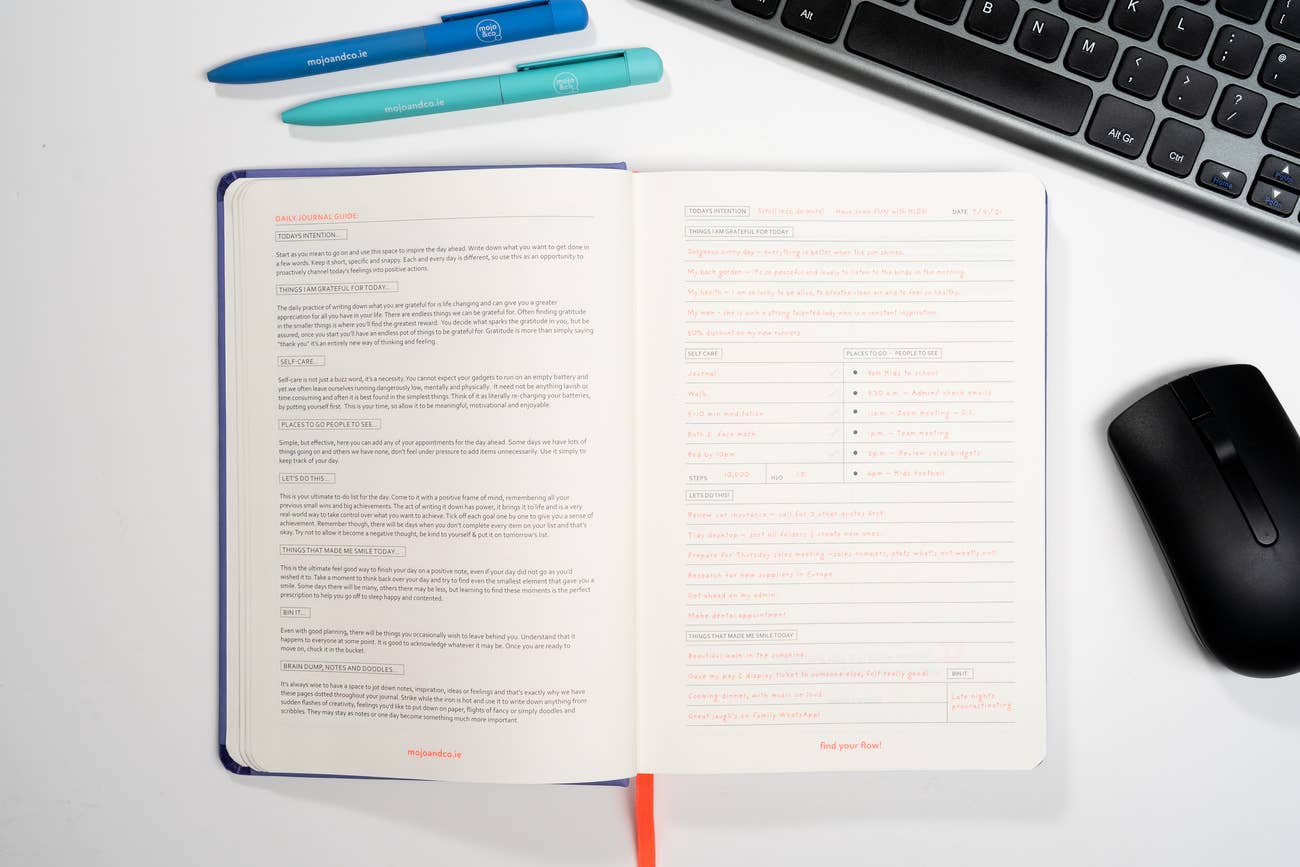 mojoandco.ie
mojo
&co.
mojoandco.ie
mojo
&co.
Alt
B
N
M
K
L
<
,
>
.
:
;
?
/
@
Alt Gr
Ctrl
Home
PgUp
PgDn
DAILY JOURNAL GUIDE
TODAYS INTENTION...
Start as you mean to go on and use this space to inspire the day ahead. Write down what you want to get done in
a few words. Keep it short, specific and snappy. Each and every day is different, so use this as an opportunity to
proactively channel today's feelings into positive actions.
THINGS I AM GRATEFUL FOR TODAY...
The daily practice of writing down what you are grateful for is life changing and can give you a greater
appreciation for all you have in your life. There are endless things we can be grateful for. Often finding gratitude
in the smaller things is where you'll find the greatest reward. You decide what sparks the gratitude in you, but be
assured, once you start you'll have an endless pot of things to be grateful for. Gratitude is more than simply saying
"thank you" it's an entirely new way of thinking and feeling.
SELF-CARE...
Self-care is not just a buzz word, it's a necessity. You cannot expect your gadgets to run on an empty battery and
yet we often leave ourselves running dangerously low, mentally and physically. It need not be anything lavish or
time consuming and often it is best found in the simplest things. Think of it as literally re-charging your batteries,
by putting yourself first. This is your time, so allow it to be meaningful, motivational and enjoyable.
PLACES TO GO PEOPLE TO SEE...
Simple, but effective, here you can add any of your appointments for the day ahead. Some days we have lots of
things going on and others we have none, don't feel under pressure to add items unnecessarily. Use it simply to
keep track of your day.
LET'S DO THIS...
This is your ultimate to-do list for the day. Come to it with a positive frame of mind, remembering all your
previous small wins and big achievements. The act of writing it down has power, it brings it to life and is a very
real-world way to take control over what you want to achieve. Tick off each goal one by one to give you a sense of
achievement. Remember though, there will be days when you don't complete every item on your list and that's
okay. Try not to allow it become a negative thought, be kind to yourself & put it on tomorrow's list.
THINGS THAT MADE ME SMILE TODAY...
This is the ultimate feel good way to finish your day on a positive note, even if your day did not go as you'd
wished it to. Take a moment to think back over your day and try to find even the smallest element that gave you a
smile. Some days there will be many, others there may be less, but learning to find these moments is the perfect
prescription to help you go off to sleep happy and contented.
BIN IT...
Even with good planning, there will be things you occasionally wish to leave behind you. Understand that it
happens to everyone at some point. It is good to acknowledge whatever it may be. Once you are ready to
move on, chuck it in the bucket.
BRAIN DUMP, NOTES AND DOODLES...
It's always wise to have a space to jot down notes, inspiration, ideas or feelings and that's exactly why we have
these pages dotted throughout your journal. Strike while the iron is hot and use it to write down anything from
sudden flashes of creativity, feelings you'd like to put down on paper, flights of fancy or simply doodles and
scribbles. They may stay as notes or one day become something much more important.
mojoandco.ie
TODAYS INTENTION Scroll less, do more! Have some FUN with KIDS! DATE
THINGS I AM GRATEFUL FOR TODAY
Gorgeous sunny day - everything is better when the sun shines.
My back garden - it's so peaceful and lovely to listen to the birds in the morning
My health - I am so lucky to be alive, to breathe clean air and to feel so healthy.
My mam - she is such a strong talented lady who is a constant inspiration
50% discount on my new runners
SELF CARE PLACES TO GO - PEOPLE TO SEE
Journal 8am Kids to school
Walk 9:30 a.m. - Admin/ check emails
5-10 min meditation 11a.m. - Zoom meeting -
Bath & face mask 1p.m. - Team meeting
Bed by 10pm 3p.m. - Review sales budgets
STEPS 10,000 H2O 6pm - Kids football
LETS DO THIS!
Renew car insurance - call for 2 other quotes first.
Tidy desktop - sort all folders & create new ones.
Prepare for Thursday sales meeting -sales numbers, stats what's hot what's not!
Research for new suppliers in Europe
Get ahead on my admin.
Make dental appointment
THINGS THAT MADE ME SMILE TODAY
Beautiful walk in the sunshine.
Gave my pay & display ticket to someone else, felt really good! BIN IT
Cooking dinner, with music on loud.
Great laugh's on family WhatsApp!
Late nights
procrastinating
find your flow!